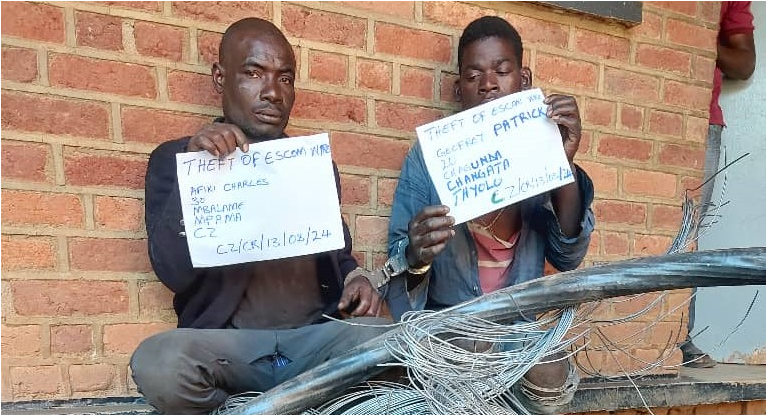 THEFT OF ESCOM WIRE
AFIKI CHARLES
30
MBALAME
MPAMA
CZ
CZ/CR/13/08/24
THEFT OF ESCOM WIRE
GEOFREY PATRICK
20
CHAGUNDA
CHANGATA
THYOLO
CZ/CR/13/08/24